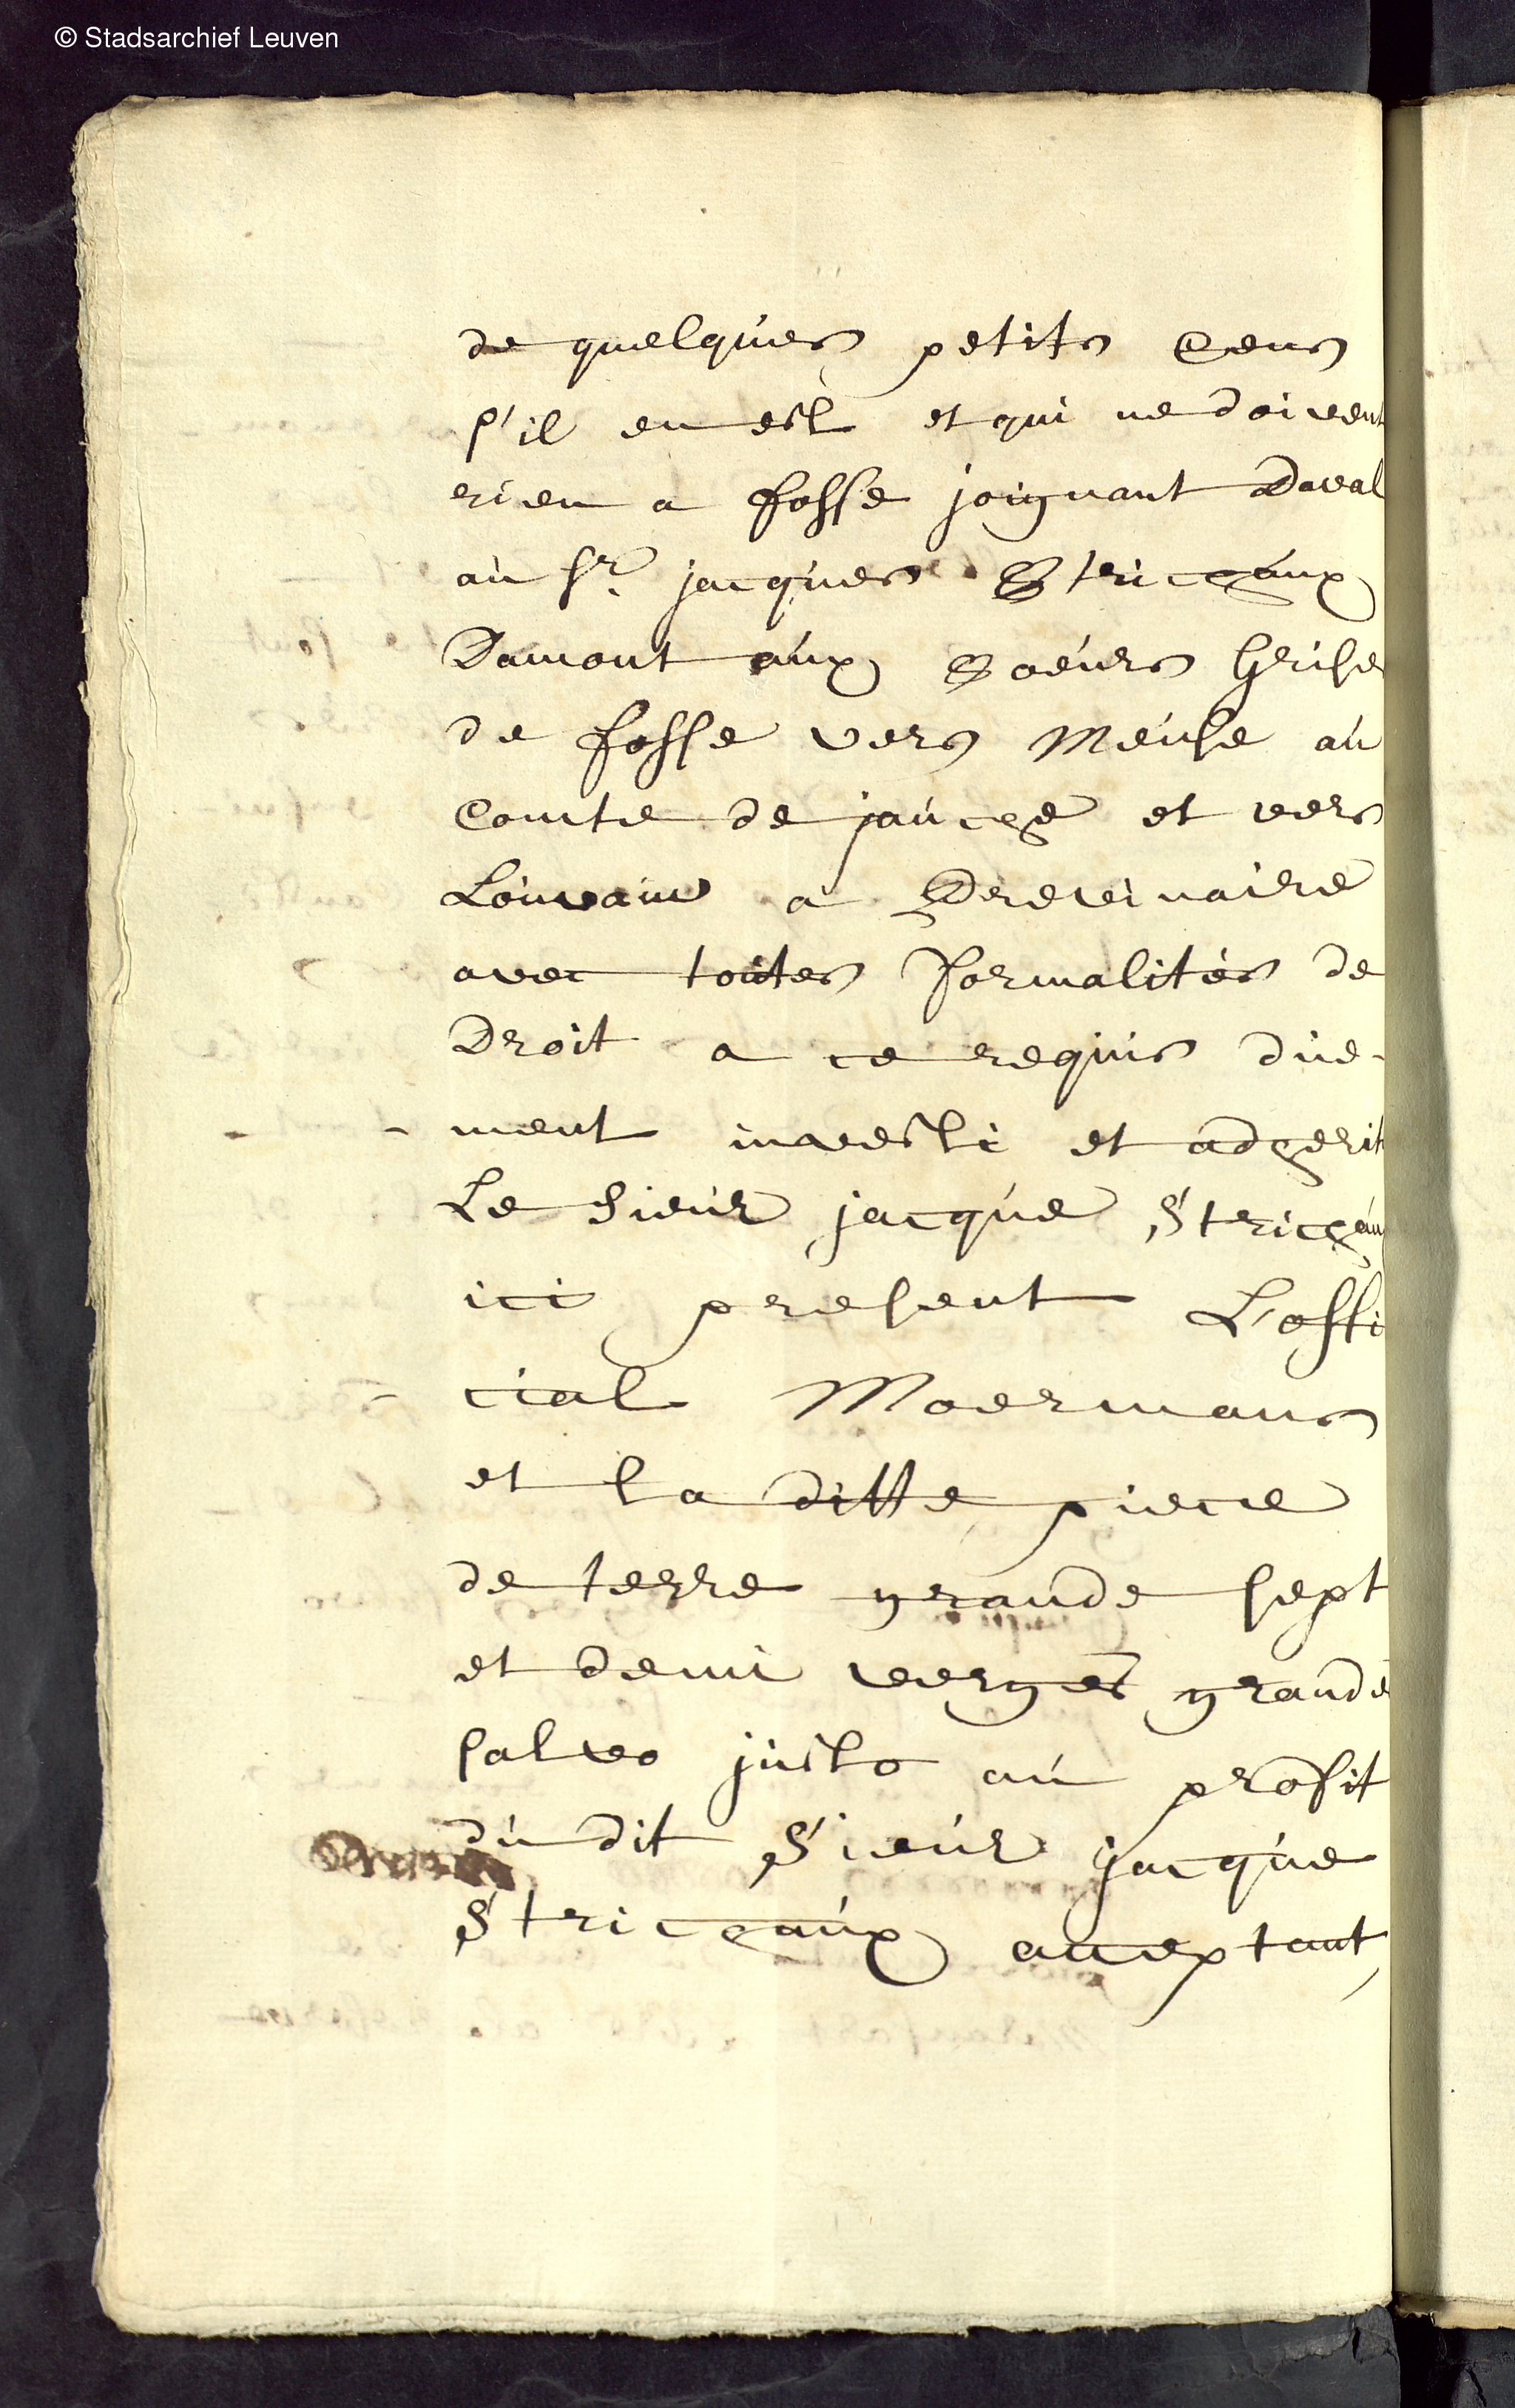 © Stadsarchief Leuven
de quelques petits Cens
s'il en est et qui ne doivent
rien a fosse joignant Daval
au Sr. jacques Stricheaux
Damont aux Soeurs Grise
de fosse vers Meuse au
Comte de jauche et vers
Louvain a Drevinaire
avec toutes formalités de
Droit a ce requis due-
ment investi et adherit
Le Sieur jacque Strichau
ici present L'offi
cial Moermans
et la ditte piece
de terre grande sept
et demi verges grande
salvo justo au profit
du dit Sieur jacque
Strichaux acceptant,